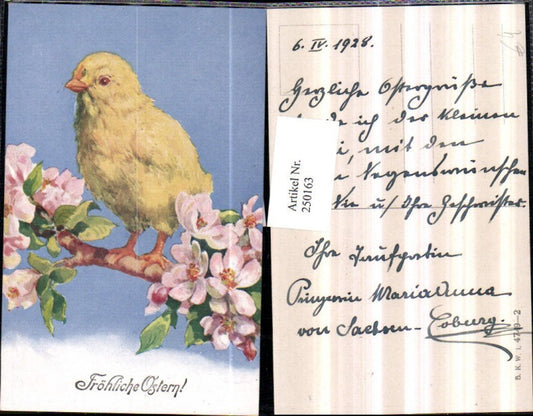 Fröhliche Ostern!
6. IV. 1928.
Herzliche Ostergrüße
ich der kleinen
mit den
Segenswünschen
u/ Ihre Geschwister.
Ihre Taufpatin
Maria Anna
von Sachsen-Coburg.
Artikel Nr.
250163
B.K.W.I. 4749-2